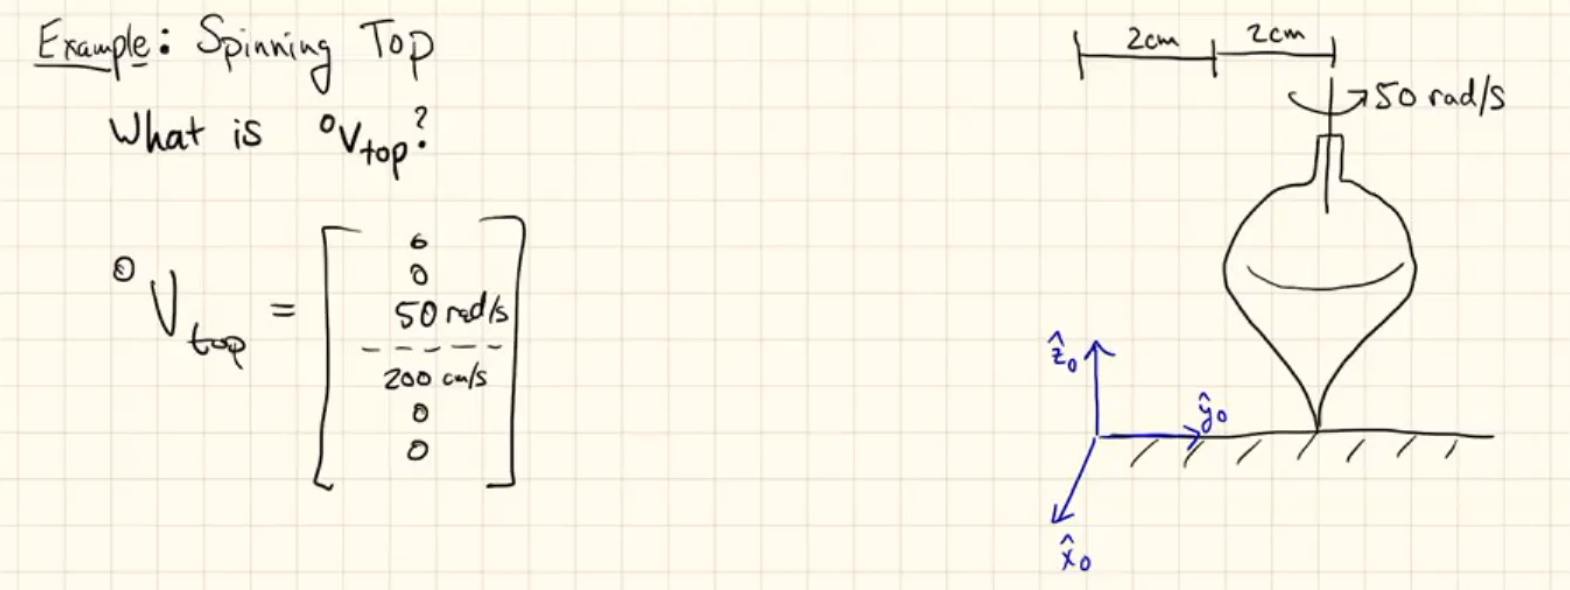 Example: Spinning Top
What is ⁰V_top?
⁰V_top = [
0
0
50 rad/s
- - - - -
200 cm/s
0
0
]
2cm 2cm
50 rad/s
ẑ₀
ŷ₀
x̂₀